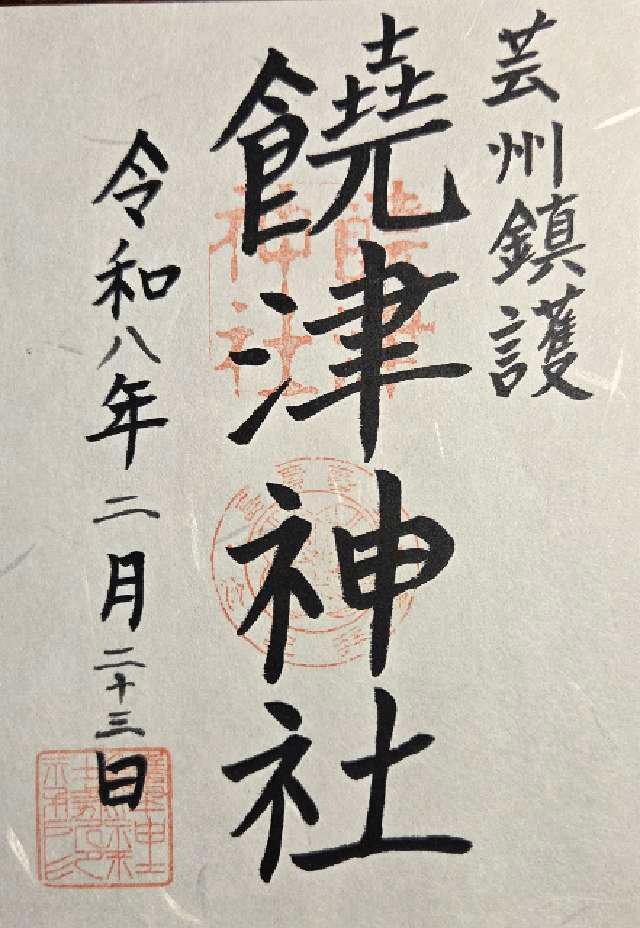 芸州鎮護
饒津神社
令和八年二月二十三日
饒津
神社